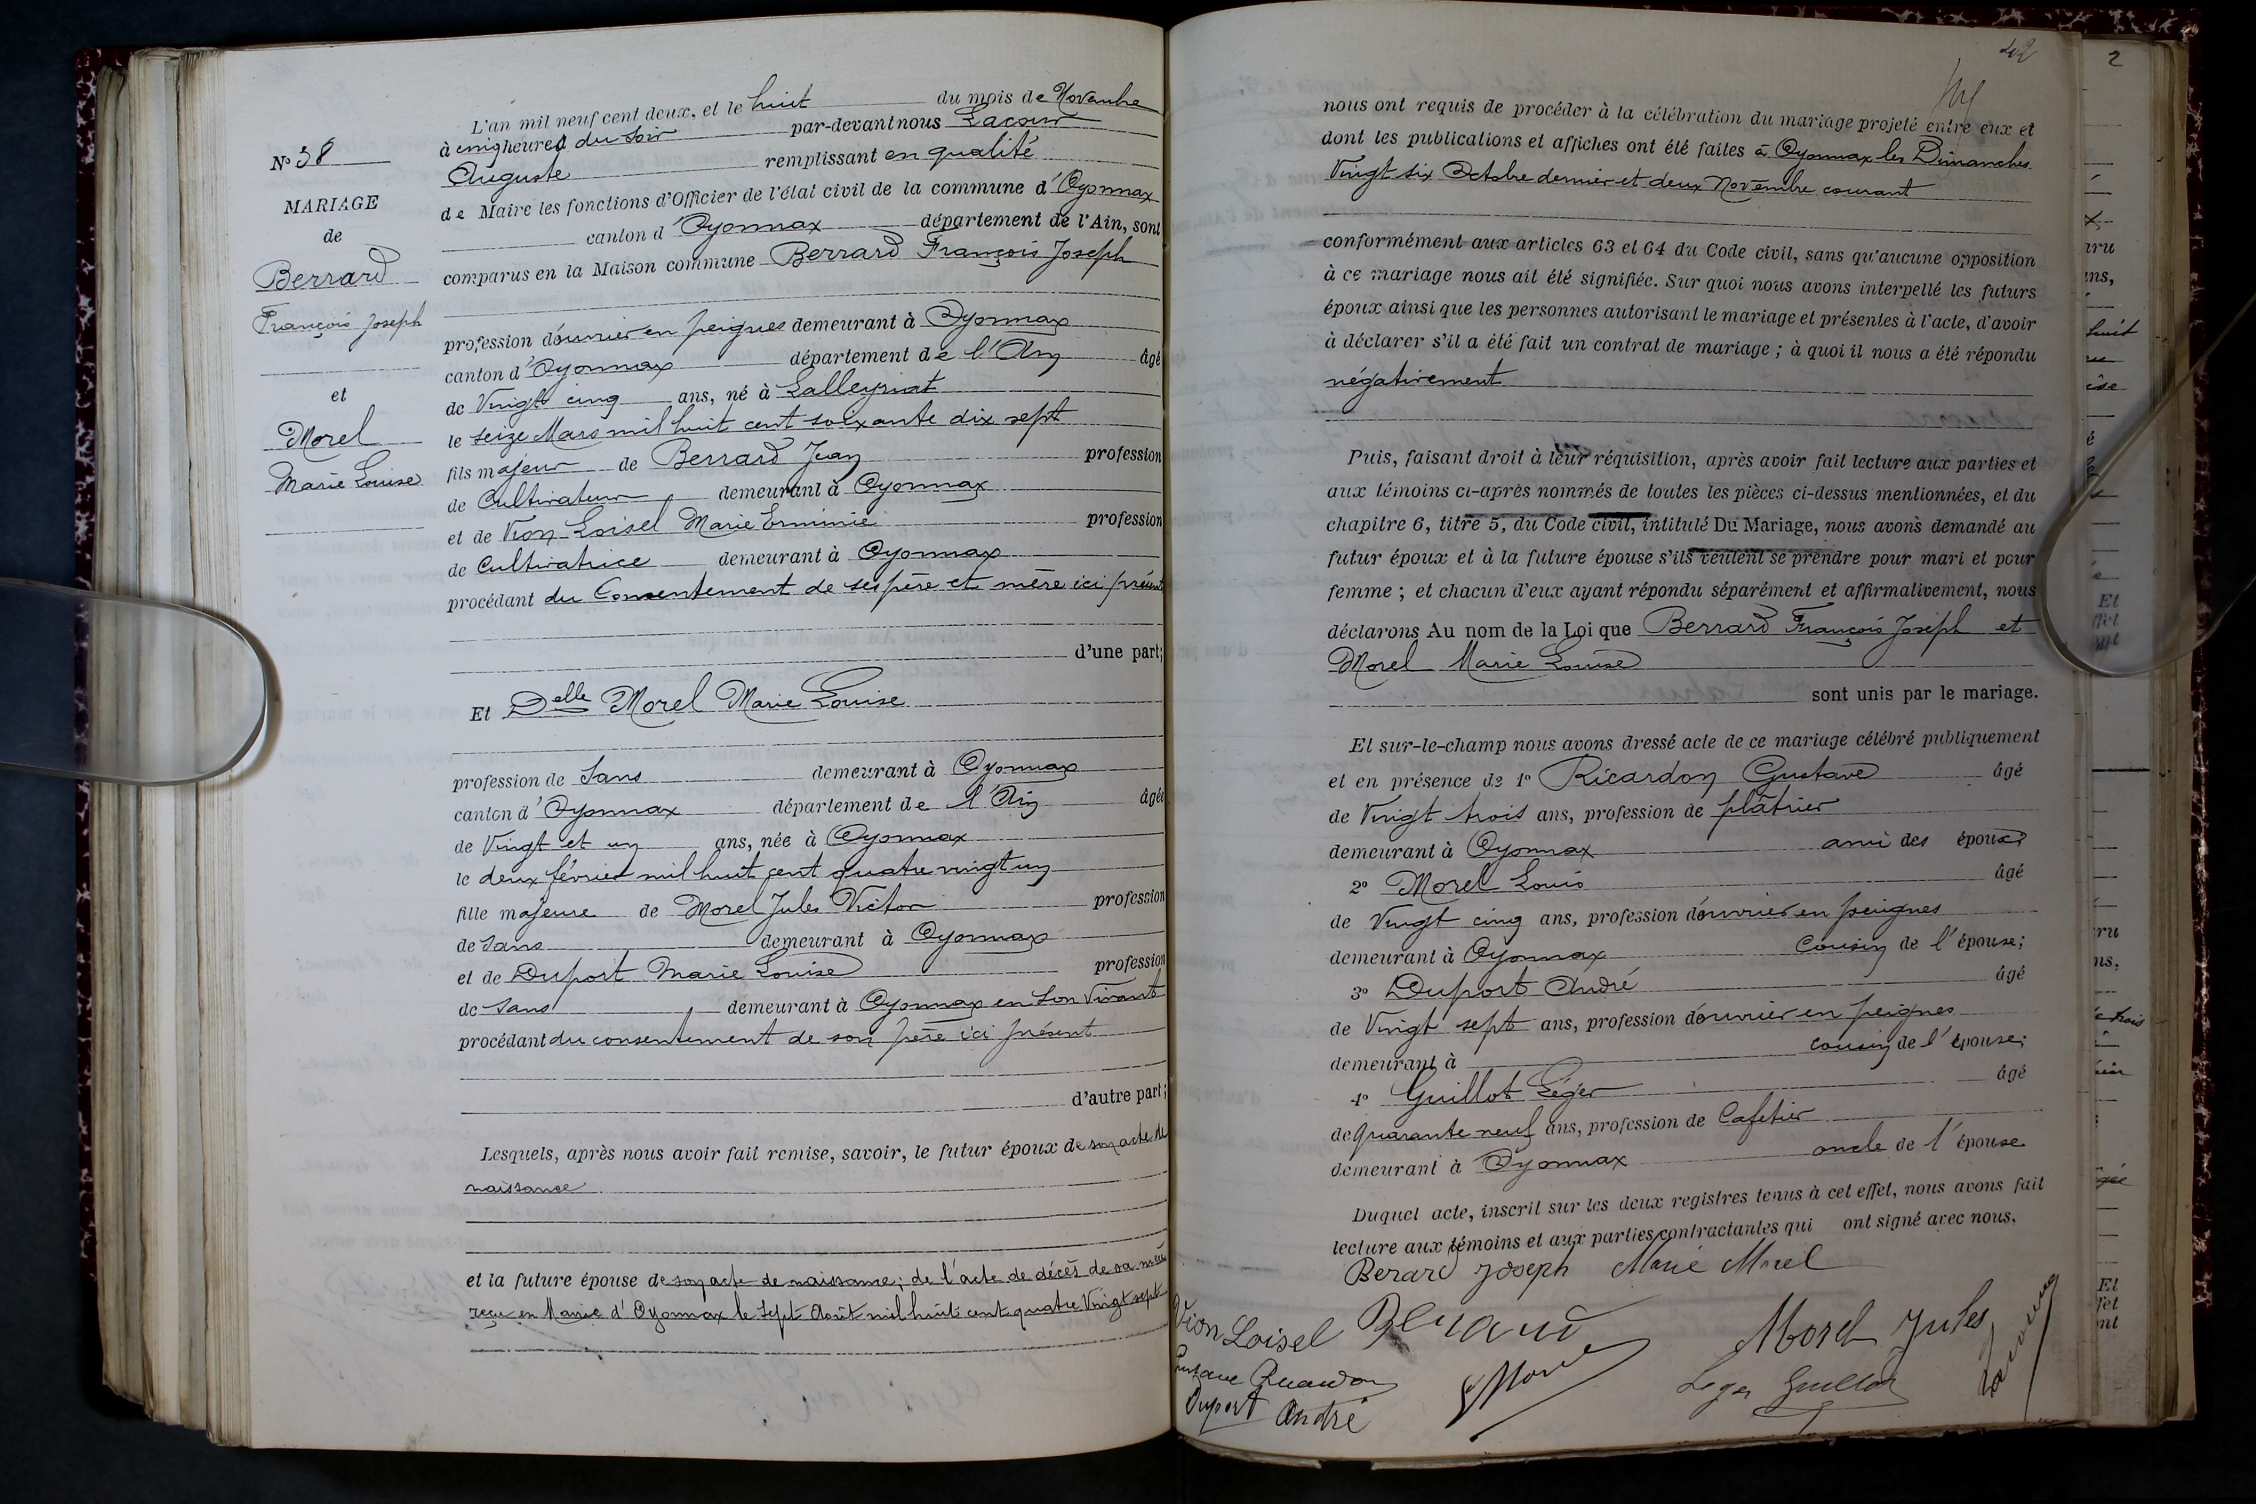 N° 38
MARIAGE
de
Berrard
François Joseph
et
Morel
Marie Louise
L'an mil neuf cent deux, et le huit du mois de Novembre
à cinq heures du soir par-devant nous Lacour
Auguste remplissant en qualité
de Maire les fonctions d'Officier de l'état civil de la commune d'Oyonnax
canton d'Oyonnax département de l'Ain, sont
comparus en la Maison commune Berrard François Joseph
profession d'ouvrier en peignes demeurant à Oyonnax
canton d'Oyonnax département de l'Ain âgé
de Vingt cinq ans, né à Lalleyriat
le seize Mars mil huit cent soixante dix sept
fils majeur de Berrard Jean profession
de Cultivateur demeurant à Oyonnax
et de Vion Loisel Marie Erminie profession
de Cultivatrice demeurant à Oyonnax
procédant du Consentement de ses père et mère ici présents
d'une part;
Et Delle Morel Marie Louise
profession de Sans demeurant à Oyonnax
canton d'Oyonnax département de l'Ain âgée
de Vingt et un ans, née à Oyonnax
le deux février mil huit cent quatre vingt un
fille majeure de Morel Jules Victor profession
de Sans demeurant à Oyonnax
et de Duport Marie Louise profession
de Sans demeurant à Oyonnax en son Vivant
procédant du consentement de son père ici présent
d'autre part;
Lesquels, après nous avoir fait remise, savoir, le futur époux de son acte de
naissance
et la future épouse de son acte de naissance; de l'acte de décès de sa mère
reçu en Mairie d'Oyonnax le sept Août mil huit cent quatre Vingt sept
42
nous ont requis de procéder à la célébration du mariage projeté entre eux et
dont les publications et affiches ont été faites à Oyonnax les Dimanches
Vingt six Octobre dernier et deux Novembre courant
conformément aux articles 63 et 64 du Code civil, sans qu'aucune opposition
à ce mariage nous ait été signifiée. Sur quoi nous avons interpellé les futurs
époux ainsi que les personnes autorisant le mariage et présentes à l'acte, d'avoir
à déclarer s'il a été fait un contrat de mariage; à quoi il nous a été répondu
négativement
Puis, faisant droit à leur réquisition, après avoir fait lecture aux parties et
aux témoins ci-après nommés de toutes les pièces ci-dessus mentionnées, et du
chapitre 6, titre 5, du Code civil, intitulé Du Mariage, nous avons demandé au
futur époux et à la future épouse s'ils veulent se prendre pour mari et pour
femme; et chacun d'eux ayant répondu séparément et affirmativement, nous
déclarons Au nom de la Loi que Berrard François Joseph et
Morel Marie Louise
sont unis par le mariage.
Et sur-le-champ nous avons dressé acte de ce mariage célébré publiquement
et en présence de 1° Ricardon Gustave âgé
de Vingt trois ans, profession de plâtrier
demeurant à Oyonnax ami des époux
2° Morel Louis âgé
de Vingt cinq ans, profession d'ouvrier en peignes
demeurant à Oyonnax Cousin de l'épouse;
3° Duport André âgé
de Vingt sept ans, profession d'ouvrier en peignes
demeurant à cousin de l'épouse;
4° Guillot Léger âgé
de quarante neuf ans, profession de Cafetier
demeurant à Oyonnax oncle de l'épouse
Duquel acte, inscrit sur les deux registres tenus à cet effet, nous avons fait
lecture aux témoins et aux parties contractantes qui ont signé avec nous.
Berard Joseph Marie Morel
Vion Loisel Berrard Morel Jules
Gustave Ricardon L Morel Leger Guillot
Duport André
2